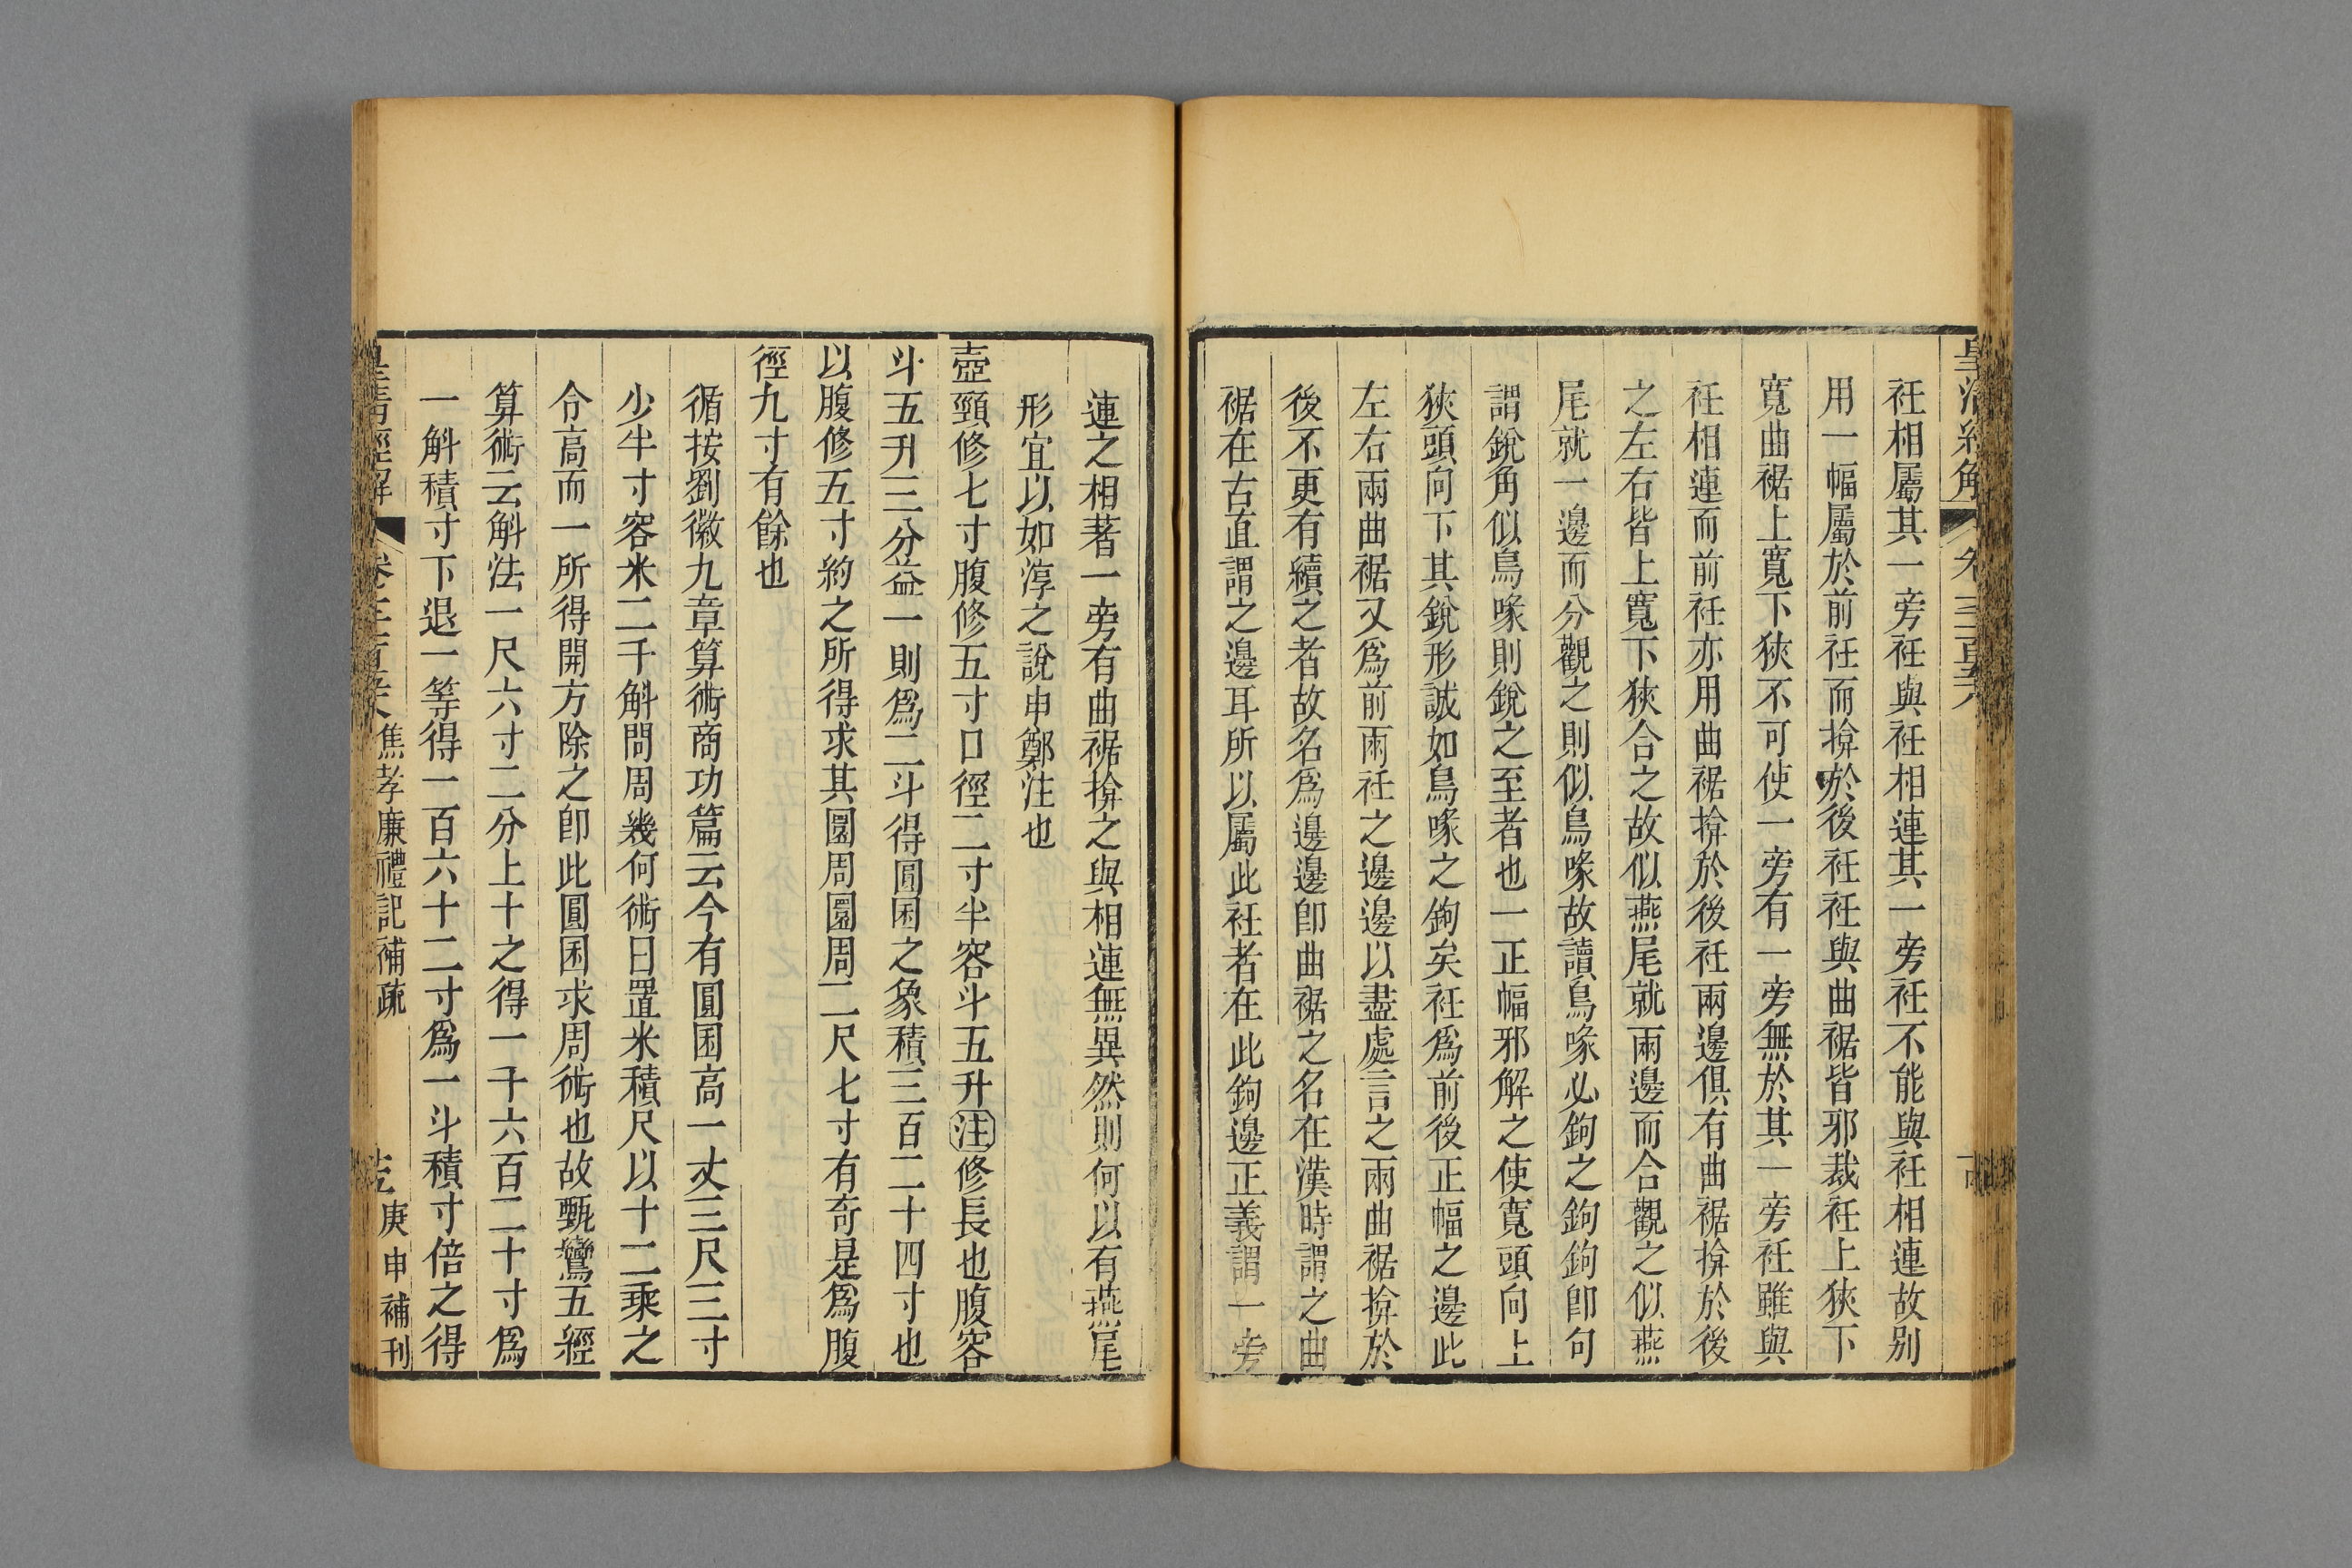 衽相屬其一旁衽與衽相連其一旁衽不能與衽相連故别
用一幅屬於前衽而揜於後衽衽與曲裾皆邪裁衽上狹下
寬曲裾上寬下狹不可使一旁有一旁無於其一旁衽雖與
衽相連而前衽亦用曲裾揜於後衽兩邊俱有曲裾揜於後
之左右皆上寬下狹合之故似燕尾就兩邊而合觀之似燕
尾就一邊而分觀之則似鳥喙故讀鳥喙必鉤之鉤鉤卽句
謂銳角似鳥喙則銳之至者也一正幅邪解之使寬頭向上
狹頭向下其銳形誠如鳥喙之鉤矣衽爲前後正幅之邊此
左右兩曲裾又爲前兩衽之邊邊以盡處言之兩曲裾揜於
後不更有續之者故名爲邊邊卽曲裾之名在漢時謂之曲
裾在古直謂之邊耳所以屬此衽者在此鉤邊正義謂一旁
連之相著一旁有曲裾揜之與相連無異然則何以有燕尾
形宜以如淳之說申鄭注也
壺頸修七寸腹修五寸口徑二寸半容斗五升注修長也腹容
斗五升三分益一則爲二斗得圓囷之象積三百二十四寸也
以腹修五寸約之所得求其圜周圜周二尺七寸有奇是爲腹
徑九寸有餘也
循按劉徽九章算術商功篇云今有圓囷高一丈三尺三寸
少半寸容米二千斛問周幾何術曰置米積尺以十二乘之
令高而一所得開方除之卽此圓囷求周術也故甄鸞五經
算術云斛法一尺六寸二分上十之得一千六百二十寸爲
一斛積寸下退一等得一百六十二寸爲一斗積寸倍之得
皇清經解 焦孝廉禮記補疏 庚申補刊